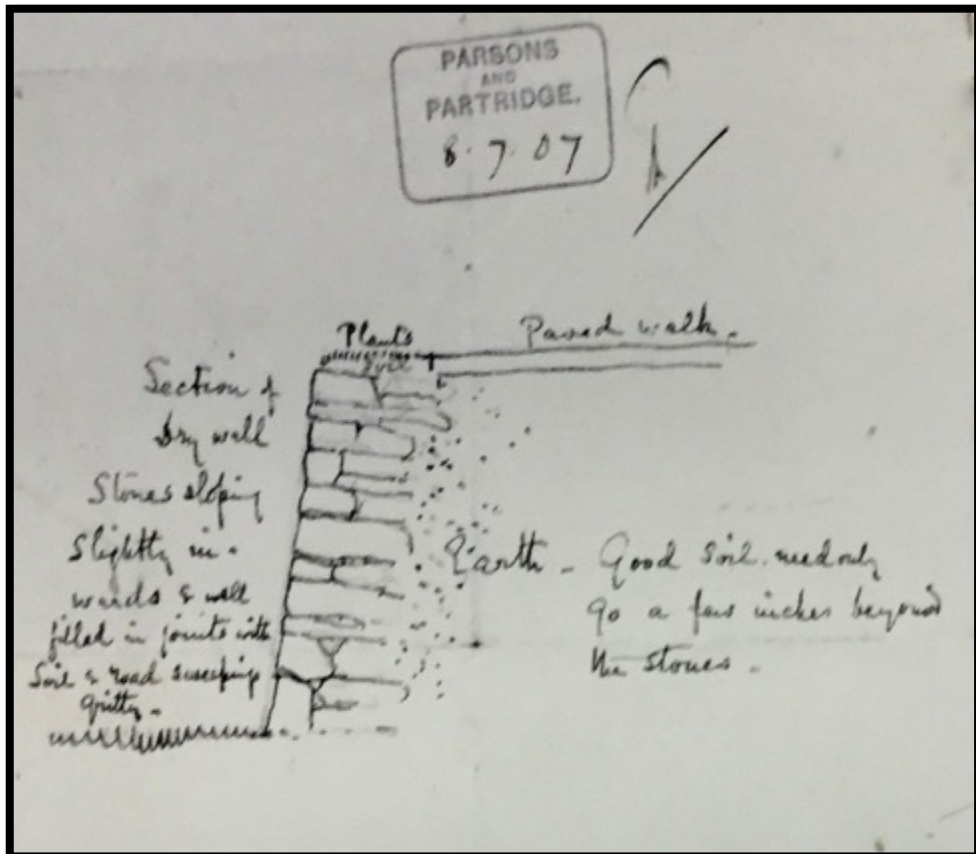 PARSONS
AND
PARTRIDGE.
8.7.07
Plants
Soil
Paved walk.
Section of
Dry wall
Stones sloping
slightly in-
wards & well
filled in joints with
Soil & road sweepings
gritty.
Earth - Good soil need only
go a few inches beyond
the stones.